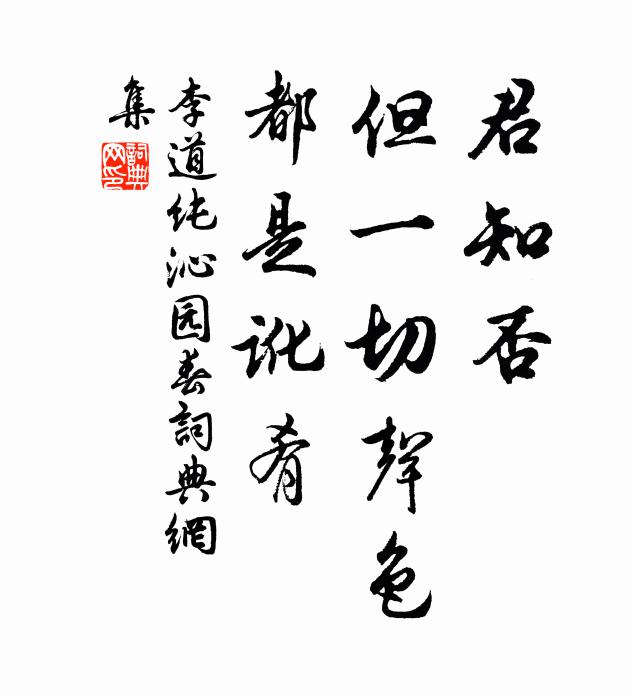 君知否
但一切聲色
都是訛肴
李道纯沁园春詞典網
集
詞典
网印